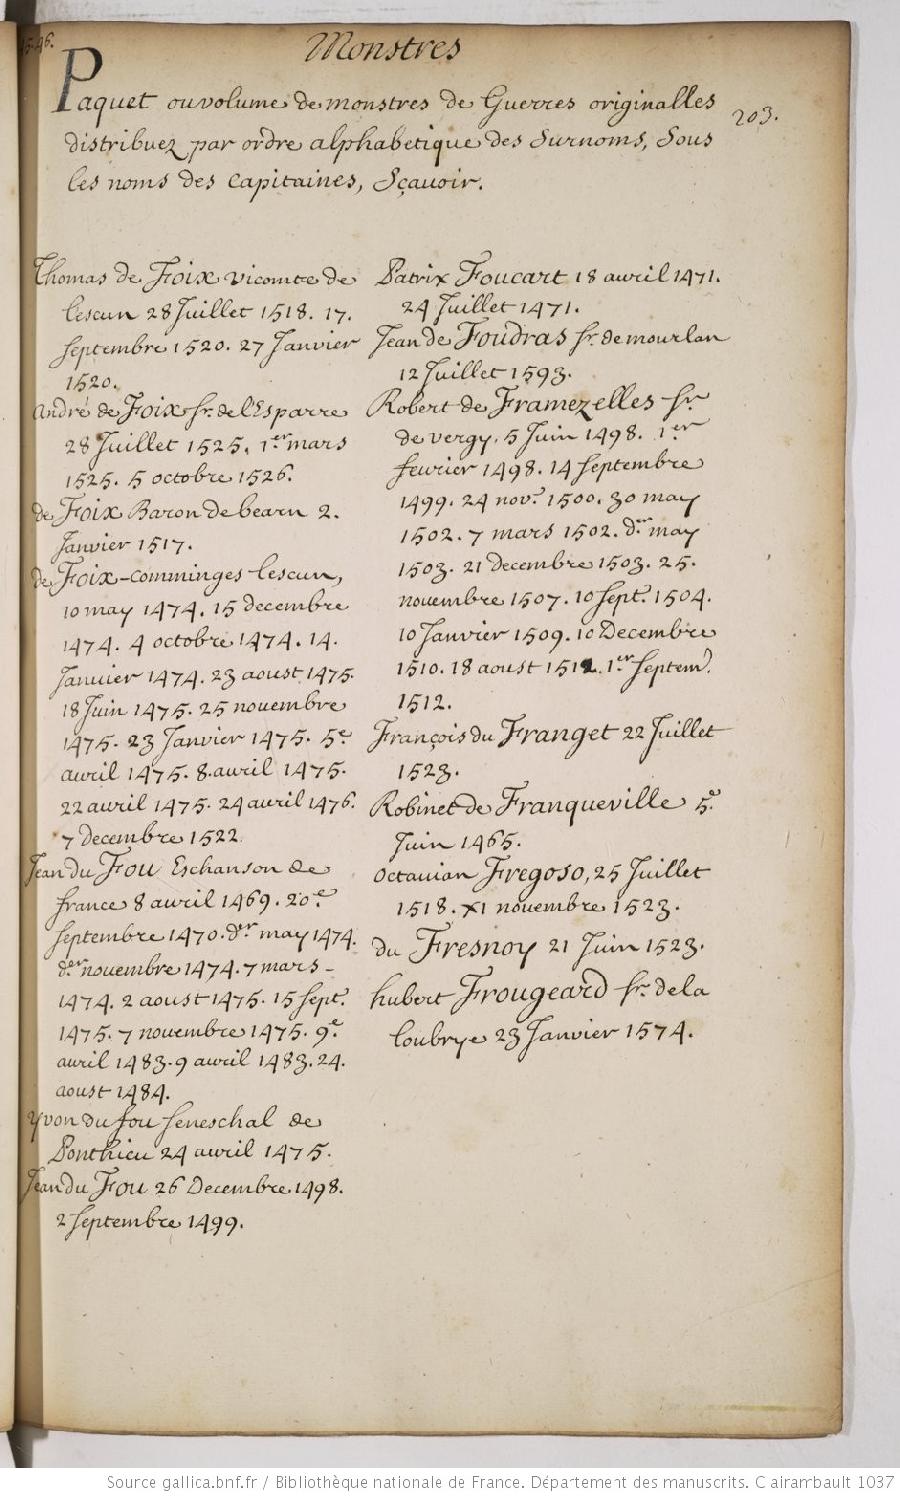 Monstres
Paquet ou volume de monstres de Guerres originalles
203.
distribuez par ordre alphabetique des Surnoms, Sous
les noms des Capitaines, Sçavoir.
Thomas de Foix vicomte de
lescun 28 Juillet 1518. 17.
septembre 1520. 27 Janvier
1520.
André de Foix sr. de l'Esparre
28 Juillet 1525. 1er mars
1525. 5 octobre 1526.
de Foix Baron de bearn 2.
Janvier 1517.
de Foix-Comminges-lescun,
10 may 1474. 15 decembre
1474. 4 octobre 1474. 14.
Janvier 1474. 23 aoust 1475.
18 Juin 1475. 25 novembre
1475. 23 Janvier 1475. 5e.
avril 1475. 8. avril 1475.
22 avril 1475. 24 avril 1476.
7 decembre 1522
Jean du Fou Eschanson de
france 8 avril 1469. 20e.
septembre 1470. der may 1474.
der novembre 1474. 7 mars-
1474. 2 aoust 1475. 15 sept.
1475. 7 novembre 1475. 9e.
avril 1483. 9 avril 1483. 24.
aoust 1484.
Yvon du fou seneschal de
Ponthieu 24 avril 1475.
Jean du Fou 26 Decembre. 1498.
2 septembre 1499.
Patrix Foucart 18 avril 1471.
24 Juillet 1471.
Jean de Foudras sr. de mourlan
12 Juillet 1593.
Robert de Framezelles sr.
de vergy. 5 Juin 1498. 1er
fevrier 1498. 14 septembre
1499. 24 nov.e 1500. 30 may
1502. 7 mars 1502. der may
1503. 21 decembre 1503. 25.
novembre 1507. 10 sept. 1504.
10 Janvier 1509. 10 Decembre
1510. 18 aoust 1512. 1er septem.
1512.
François du Franget 22 Juillet
1523.
Robinet de Franqueville 5e.
Juin 1465.
Octavian Fregoso, 25 Juillet
1518. XI novembre 1523.
du Fresnoy 21 Juin 1523.
hubert Frougeard sr. de la
loubrye 23 Janvier 1574.
Source gallica.bnf.fr / Bibliothèque nationale de France. Département des manuscrits. Clairambault 1037